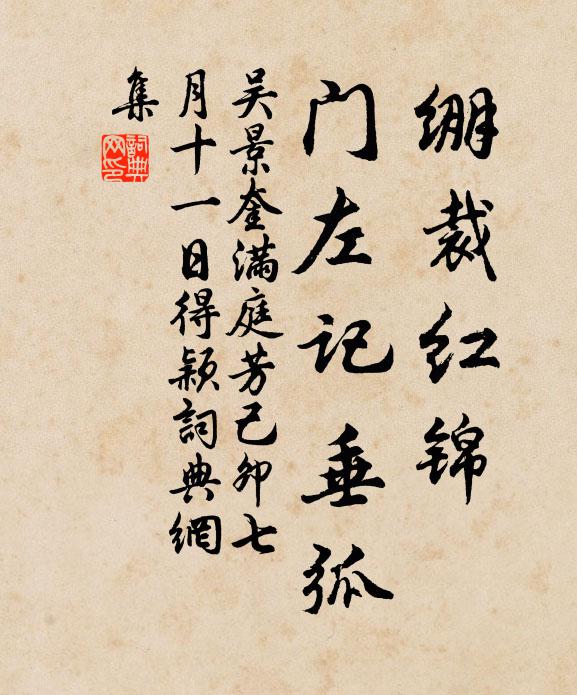 绷裁红锦
门左记垂弧
吴景奎满庭芳己卯七
月十一日得颖词典網
集
詞典網印